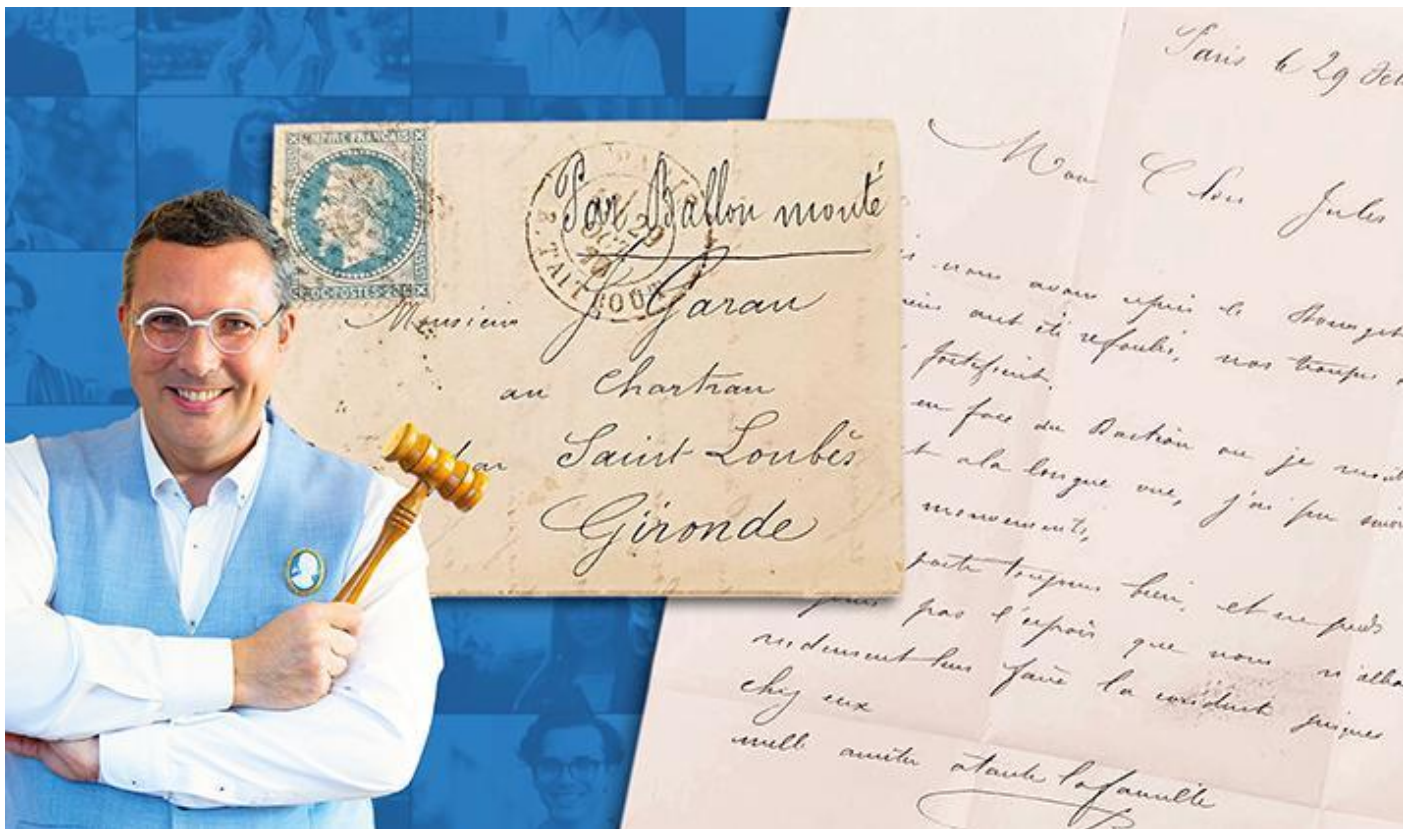 EMPIRE FRANÇAIS
20C POSTES 20C
TAITBOUT
OCT
29
Par Ballon monté
Monsieur J. Garau
au Chartran
par Saint-Loubès
Gironde
Paris le 29
Mon Cher Jules
nous avons repris le Bourget
ont été refoulés, nos troupes
fortifient,
en face du Bastion ou je
a la longue vue, j'ai pu
mouvements,
porte toujours bien, et ne perds
pas l'espoir que nous
rudement leur faire la conduite jusques
chez eux
mille amitiés a toute la famille